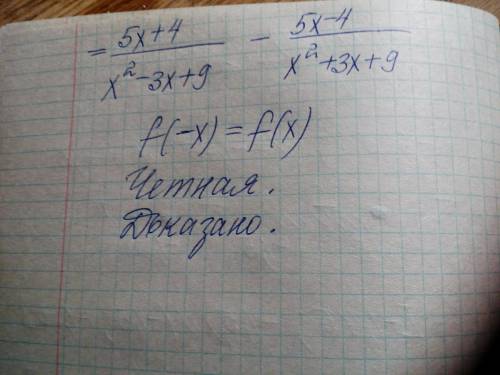 = (5x+4)/(x²-3x+9) - (5x-4)/(x²+3x+9)
f(-x) = f(x)
Четная.
Доказано.